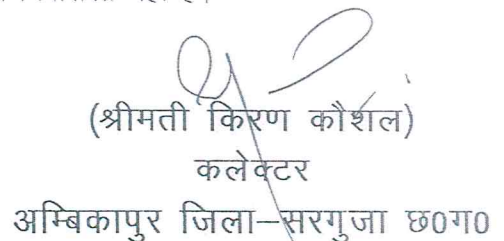 (श्रीमती किरण कौशल)
कलेक्टर
अम्बिकापुर जिला–सरगुजा छ0ग0